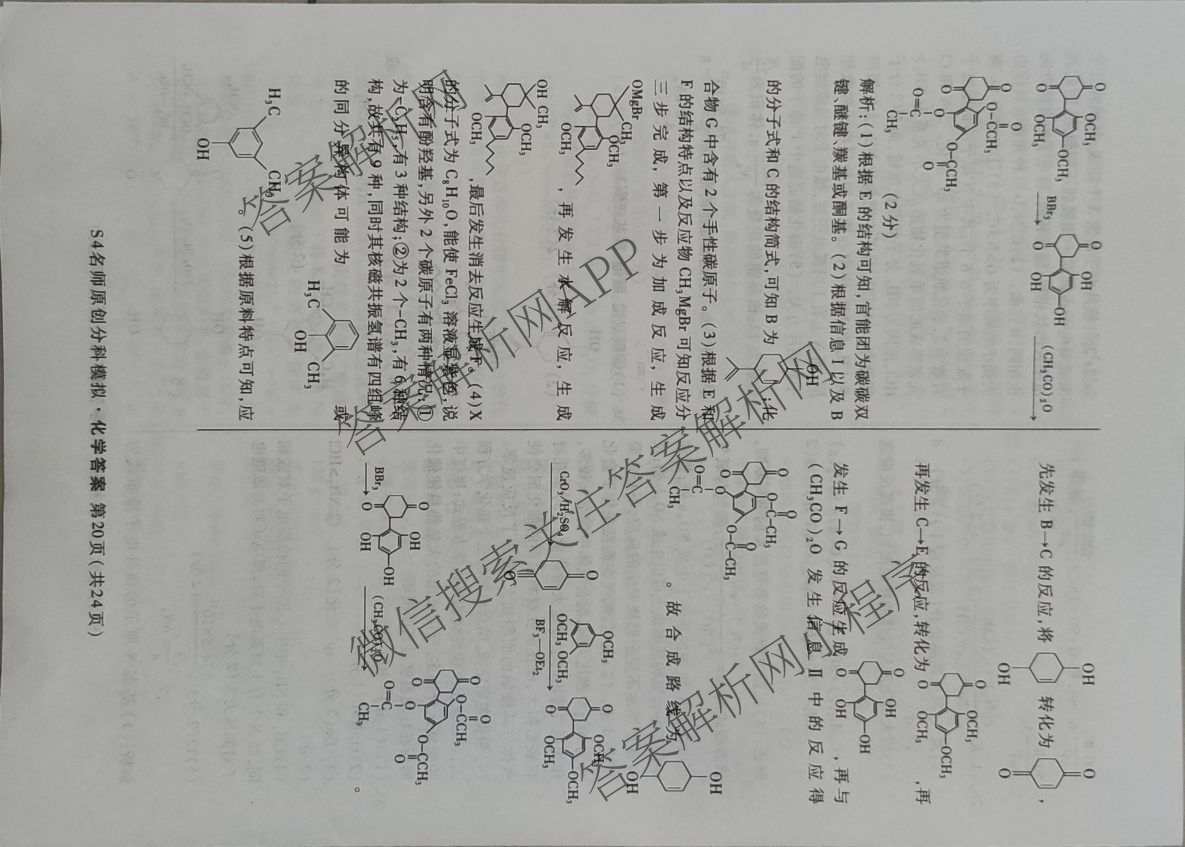 BBr₃
(CH₃CO)₂O
(2分)
解析：(1)根据E的结构可知，官能团为碳碳双
键、醚键、羰基或酮基。(2)根据信息Ⅰ以及B
的分子式和C的结构简式，可知B为
OH
；化
合物G中含有2个手性碳原子。(3)根据E和
F的结构特点以及反应物CH₃MgBr可知反应分
三步完成，第一步为加成反应，生成
OMgBr
CH₃
OCH₃
OCH₃
，再发生水解反应，生成
OH CH₃
OCH₃
OCH₃
，最后发生消去反应生成F。(4)X
的分子式为C₈H₁₀O，能使FeCl₃溶液显紫色，说
明含有酚羟基，另外2个碳原子有两种情况，①
为-C₂H₅有3种结构；②为2个-CH₃，有6种结
构，故共有9种，同时其核磁共振氢谱有四组峰
的同分异构体可能为
H₃C
OH
CH₃
或
H₃C
CH₃
OH
。(5)根据原料特点可知，应
先发生B→C的反应，将
OH
OH
转化为
O
O
，
再发生C→E的反应，转化为
O
OCH₃
O
OCH₃
，再
发生F→G的反应生成
O
OH
O
OH
，再与
(CH₃CO)₂O发生信息Ⅱ中的反应得
。故合成路线为
OH
OH
CrO₃/H₂SO₄
O
O
OCH₃
OCH₃ OCH₃
BF₃—OEt₂
BBr₃
(CH₃CO)₂O
。
S4名师原创分科模拟·化学答案 第20页(共24页)
答案解析网APP
微信搜索关注答案解析网
答案解析网小程序